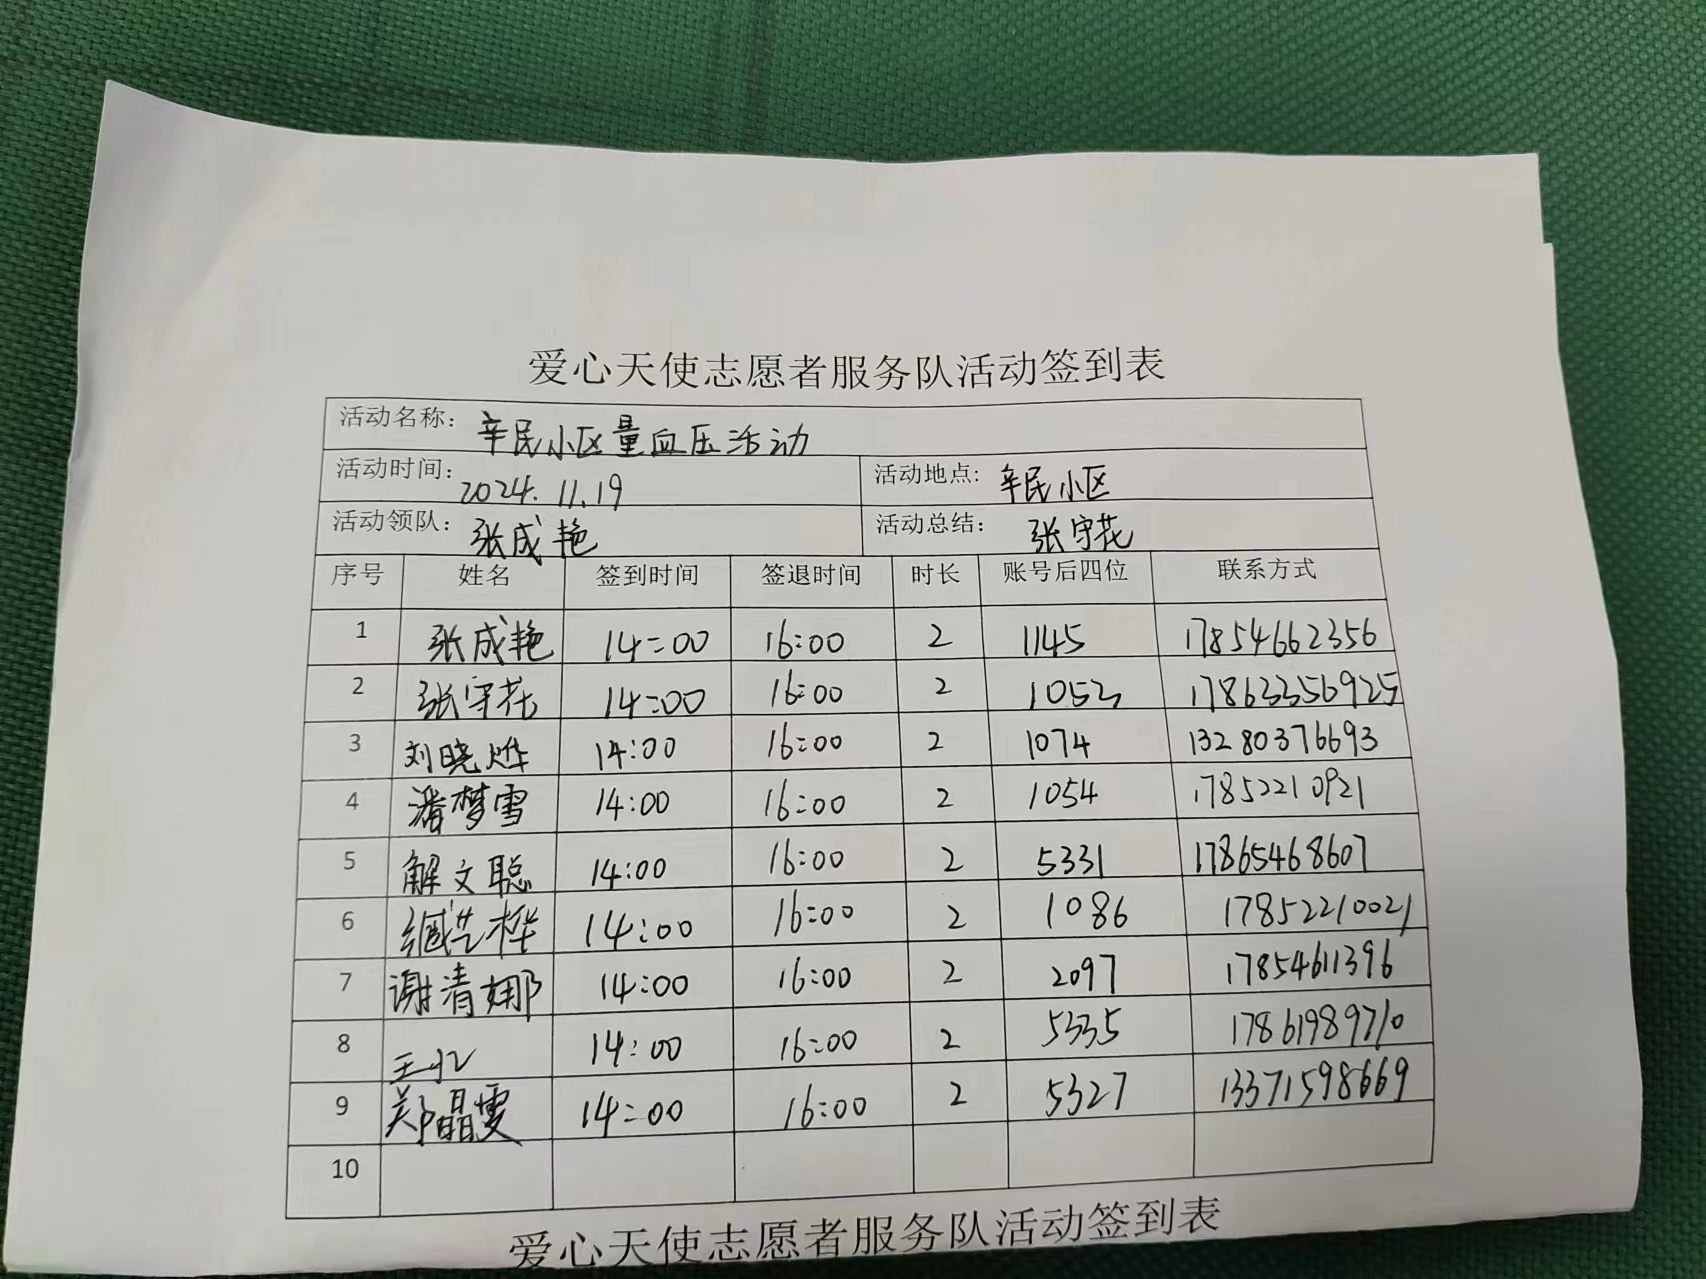 爱心天使志愿者服务队活动签到表
活动名称: 辛民小区量血压活动
活动时间: 2024.11.19 活动地点: 辛民小区
活动领队: 张成艳 活动总结: 张守花
序号 姓名 签到时间 签退时间 时长 账号后四位 联系方式
1 张成艳 14:00 16:00 2 1145 17854662356
2 张守花 14:00 16:00 2 1052 17863356925
3 刘晓烨 14:00 16:00 2 1074 13280376693
4 潘梦雪 14:00 16:00 2 1054 17852210921
5 解文聪 14:00 16:00 2 5331 17865468607
6 14:00 16:00 2 1086 17852210021
7 谢清娜 14:00 16:00 2 2097 17854611396
8 14:00 16:00 2 5335 17861989710
9 郑晶雯 14:00 16:00 2 5327 13371598669
10
爱心天使志愿者服务队活动签到表